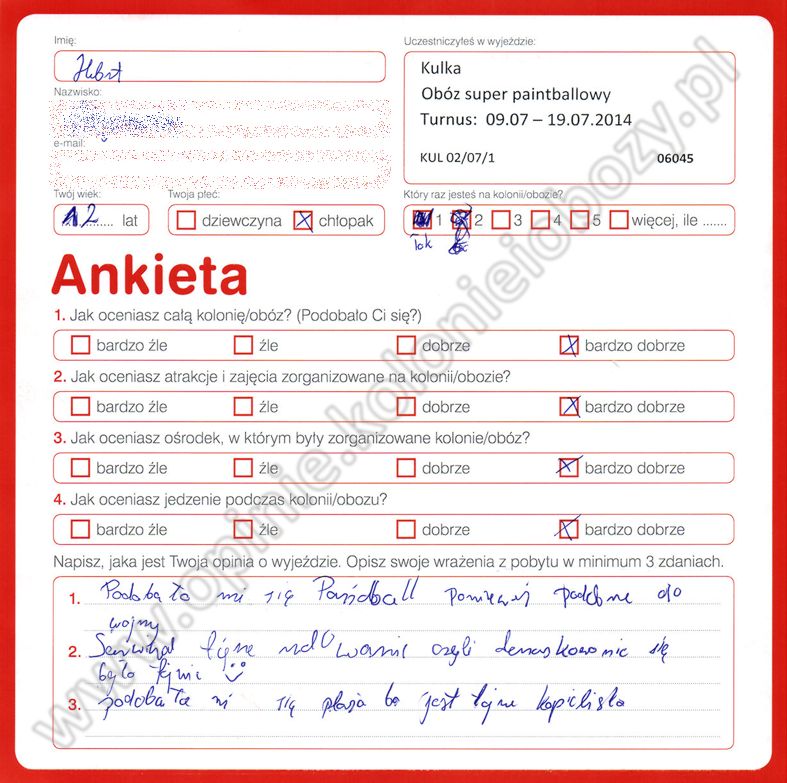 Imię:
Uczestniczyłeś w wyjeździe:
Hubert
Kulka
Obóz super paintballowy
Turnus: 09.07 – 19.07.2014
KUL 02/07/1 06045
Nazwisko:
e-mail:
Twój wiek:
Twoja płeć:
Który raz jesteś na kolonii/obozie?
12 lat
dziewczyna chłopak
1 2 3 4 5 więcej, ile .......
Tak
Ankieta
1. Jak oceniasz całą kolonię/obóz? (Podobało Ci się?)
bardzo źle źle dobrze bardzo dobrze
2. Jak oceniasz atrakcje i zajęcia zorganizowane na kolonii/obozie?
bardzo źle źle dobrze bardzo dobrze
3. Jak oceniasz ośrodek, w którym były zorganizowane kolonie/obóz?
bardzo źle źle dobrze bardzo dobrze
4. Jak oceniasz jedzenie podczas kolonii/obozu?
bardzo źle źle dobrze bardzo dobrze
Napisz, jaka jest Twoja opinia o wyjeździe. Opisz swoje wrażenia z pobytu w minimum 3 zdaniach.
1. Podoba ło mi się podobne do
wojny
2. fajne czyli się
było fajnie
3. podoba ła mi się plaża bo jest fajne kąpilisko
www.opinie.kolonieiobozy.pl